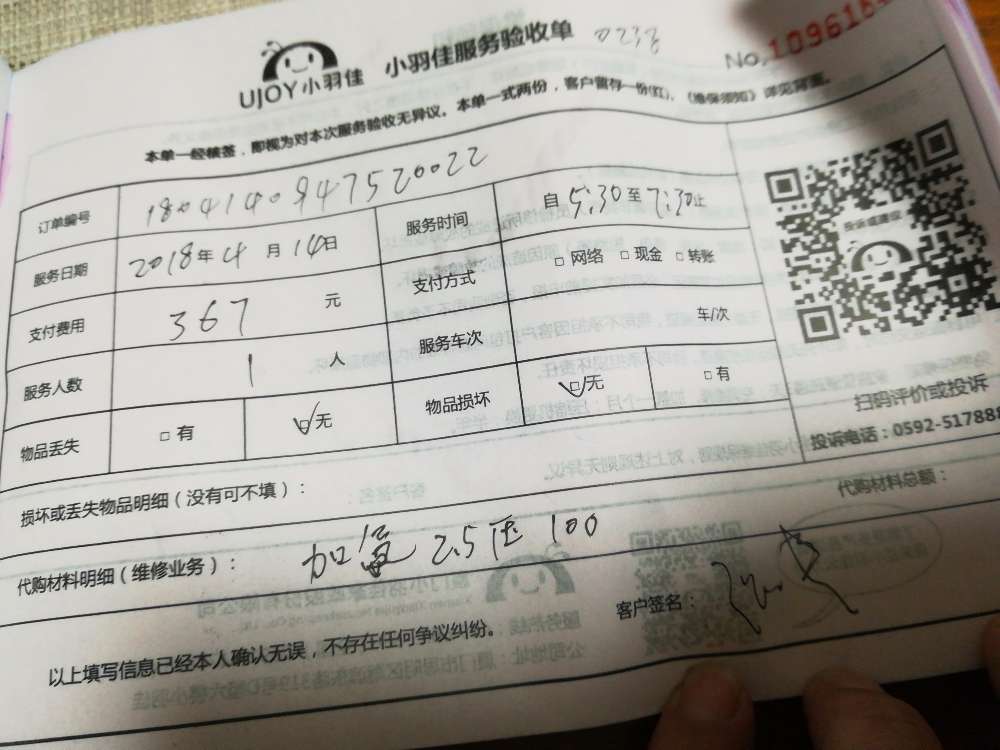 UJOY小羽佳 小羽佳服务验收单 0238
No.109615
本单一经核签，即视为对本次服务验收无异议。本单一式两份，客户留存一份(红)，《维保须知》详见背面。
订单编号 1804140947520022
服务时间 自 5:30 至 7:30 止
服务日期 2018年4月14日
支付方式 □ 网络 □ 现金 □ 转账
支付费用 367 元
服务车次 车/次
服务人数 1 人
物品丢失 □ 有 □ 无
物品损坏 □ 无 □ 有
投诉或建议
扫码评价或投诉
投诉电话：0592-517888
损坏或丢失物品明细（没有可不填）：
代购材料总额：
代购材料明细（维修业务）： 加氟 2.5压 100
以上填写信息已经本人确认无误，不存在任何争议纠纷。
客户签名：